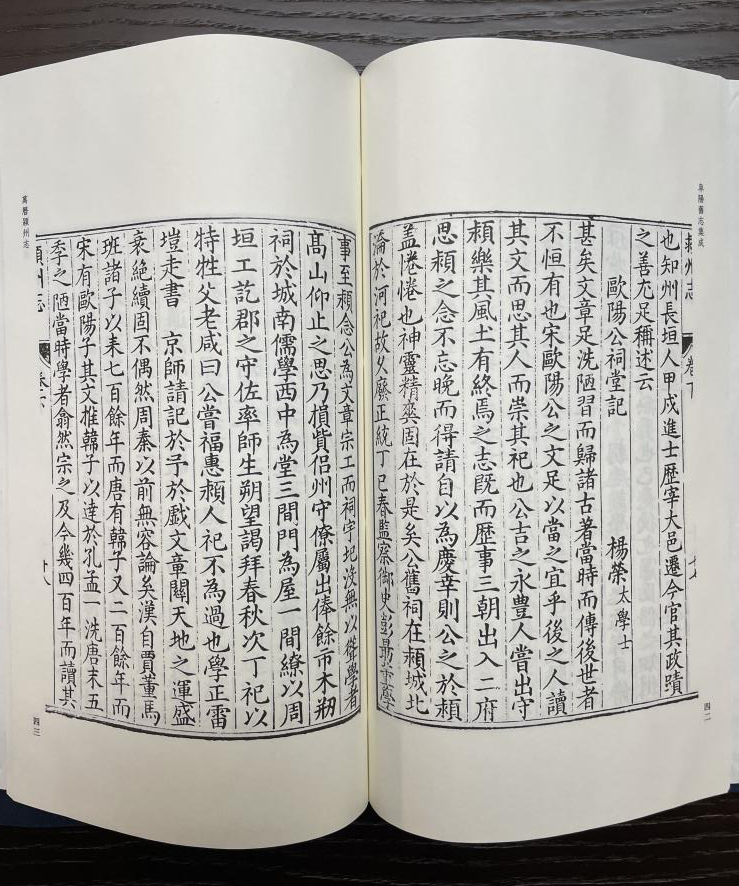 阜陽舊志集成
潁州志 卷下 十七
也知州長垣人甲戍進士歷宰大邑遷今官其政蹟
之善充足稱述云
歐陽公祠堂記 楊榮太學士
甚矣文章足洗陋習而歸諸古著當時而傳後世者
不恒有也宋歐陽公之文足以當之宜乎後之人讀
其文而思其人而崇其祀也公吉之永豊人嘗出守
頼樂其風土有終焉之志既而歷事三朝出入二府
思頼之念不忘晚而得請自以為慶幸則公之於頼
盖惓惓也神靈精爽固在於是矣公舊祠在頼城北
淪於河祀故久廢正統丁巳春監察御史彭勗董學
四二
事至頼念公為文章宗工而祠宇圮沒無以聳學者
高山仰止之思乃損貲侣州守僚屬出俸餘市木剏
祠於城南儒學西中為堂三間門為屋一間繚以周
垣工訖郡之守佐率師生朔望謁拜春秋次丁祀以
特牲父老咸曰公嘗福惠頼人祀不為過也學正雷
塏走書 京師請記於予於戲文章關天地之運盛
衰絶續固不偶然周秦以前無容論矣漢自賈董馬
班諸子以来七百餘年而唐有韓子又二百餘年而
宋有歐陽子其文推韓子以達於孔孟一洗唐末五
季之陋當時學者翕然宗之及今幾四百年而讀其
潁州志 卷下 十八
萬曆潁州志
四三